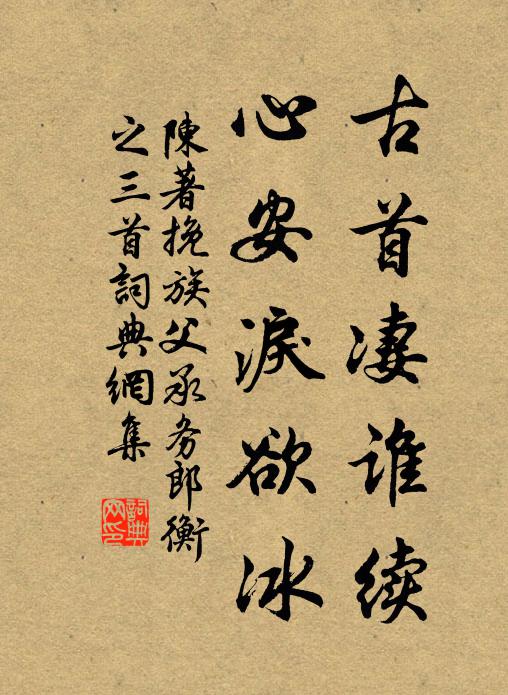 古首凄谁续
心安淚欲冰
陳著挽族父承务郎衡
之三首詞典網集
詞典
网印